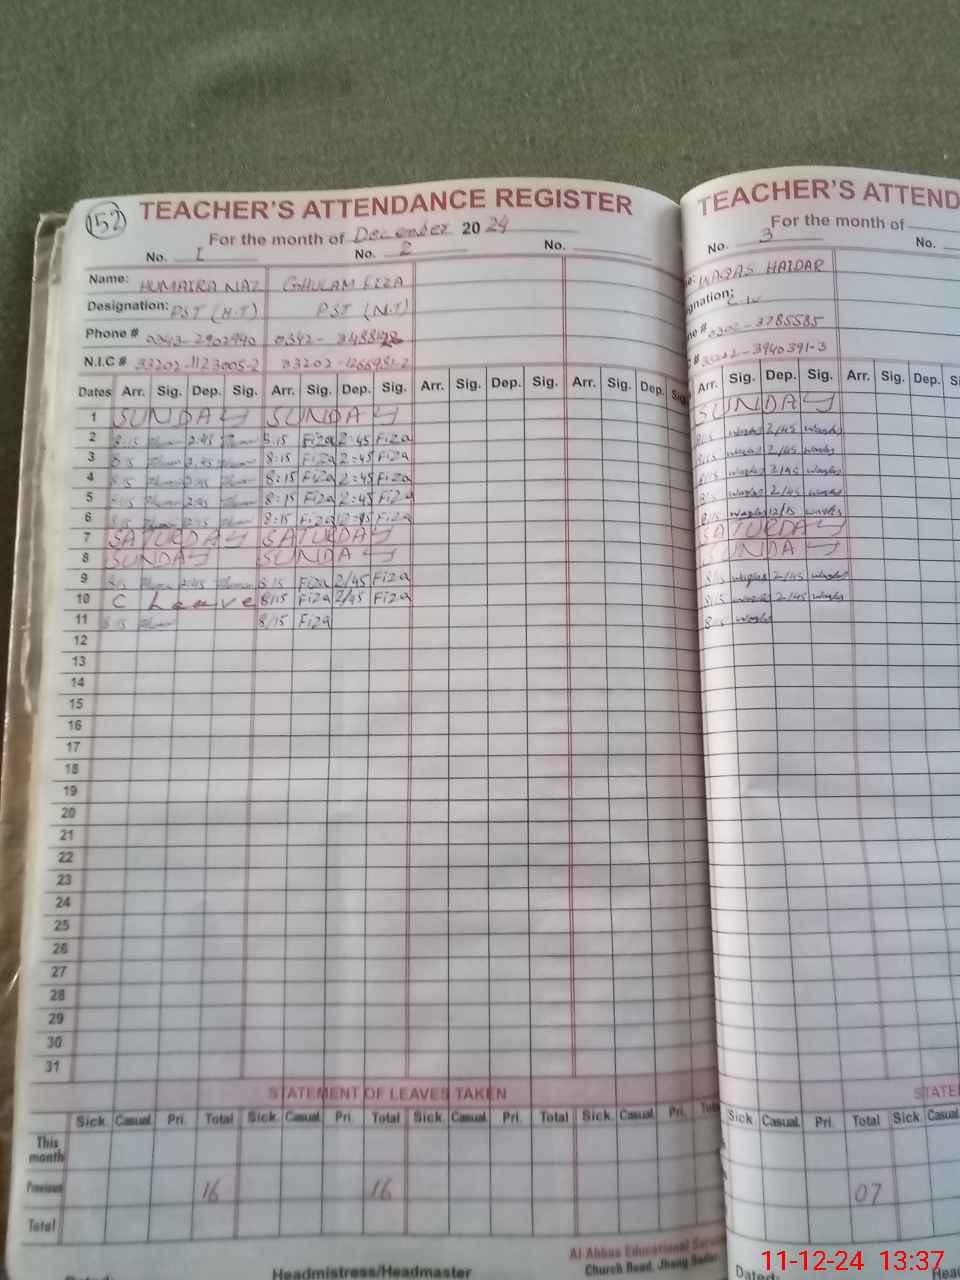 152
TEACHER'S ATTENDANCE REGISTER
For the month of December 2024
No. 1 No. 2 No.
Name: HUMAIRA NAZ GHULAM FIZA
Designation: PST (H.T) PST (N.T)
Phone # 0342-2902940 0342-
N.I.C # 33202-1123005-2 33202-
Dates Arr. Sig. Dep. Sig. Arr. Sig. Dep. Sig. Arr. Sig. Dep. Sig. Arr. Sig. Dep. Sig.
1 SUNDAY SUNDAY
2 8:15 2:45 8:15 Fiza 2:45 Fiza
3 8:15 2:45 8:15 Fiza 2:45 Fiza
4 8:15 2:45 8:15 Fiza 2:45 Fiza
5 8:15 2:45 8:15 Fiza 2:45 Fiza
6 8:15 12:15 8:15 Fiza Fiza
7 SATURDAY SATURDAY
8 SUNDAY SUNDAY
9 8:15 2:45 8:15 Fiza 2/45 Fiza
10 C Leave 8/15 Fiza 2/45 Fiza
11 8:15 8/15 Fiza
12
13
14
15
16
17
18
19
20
21
22
23
24
25
26
27
28
29
30
31
STATEMENT OF LEAVES TAKEN
Sick Casual Pri. Total Sick Casual Pri. Total Sick Casual Pri. Total Sick Casual Pri.
This month
Previous 16 16
Total
Al-Abbas Educational
Church Road, Jhang Sadar
Headmistress/Headmaster
TEACHER'S ATTEND
For the month of
No. 3 No.
WAQAS HAIDAR
gnation:
# 0302-3785585
# 33202-3940391-3
Arr. Sig. Dep. Sig. Arr. Sig. Dep.
SUNDAY
8/15 waqas 2/45 waqas
8/15 waqas 2/45 waqas
8/15 waqas 2/45 waqas
8/15 waqas 2/45 waqas
8/15 waqas 12/15 waqas
SATURDAY
SUNDAY
8/15 waqas 2/45 waqas
8/15 waqas 2/45 waqas
8/15 waqas
STATE
Sick Casual Pri. Total Sick Casual
07
Dated:
11-12-24 13:37